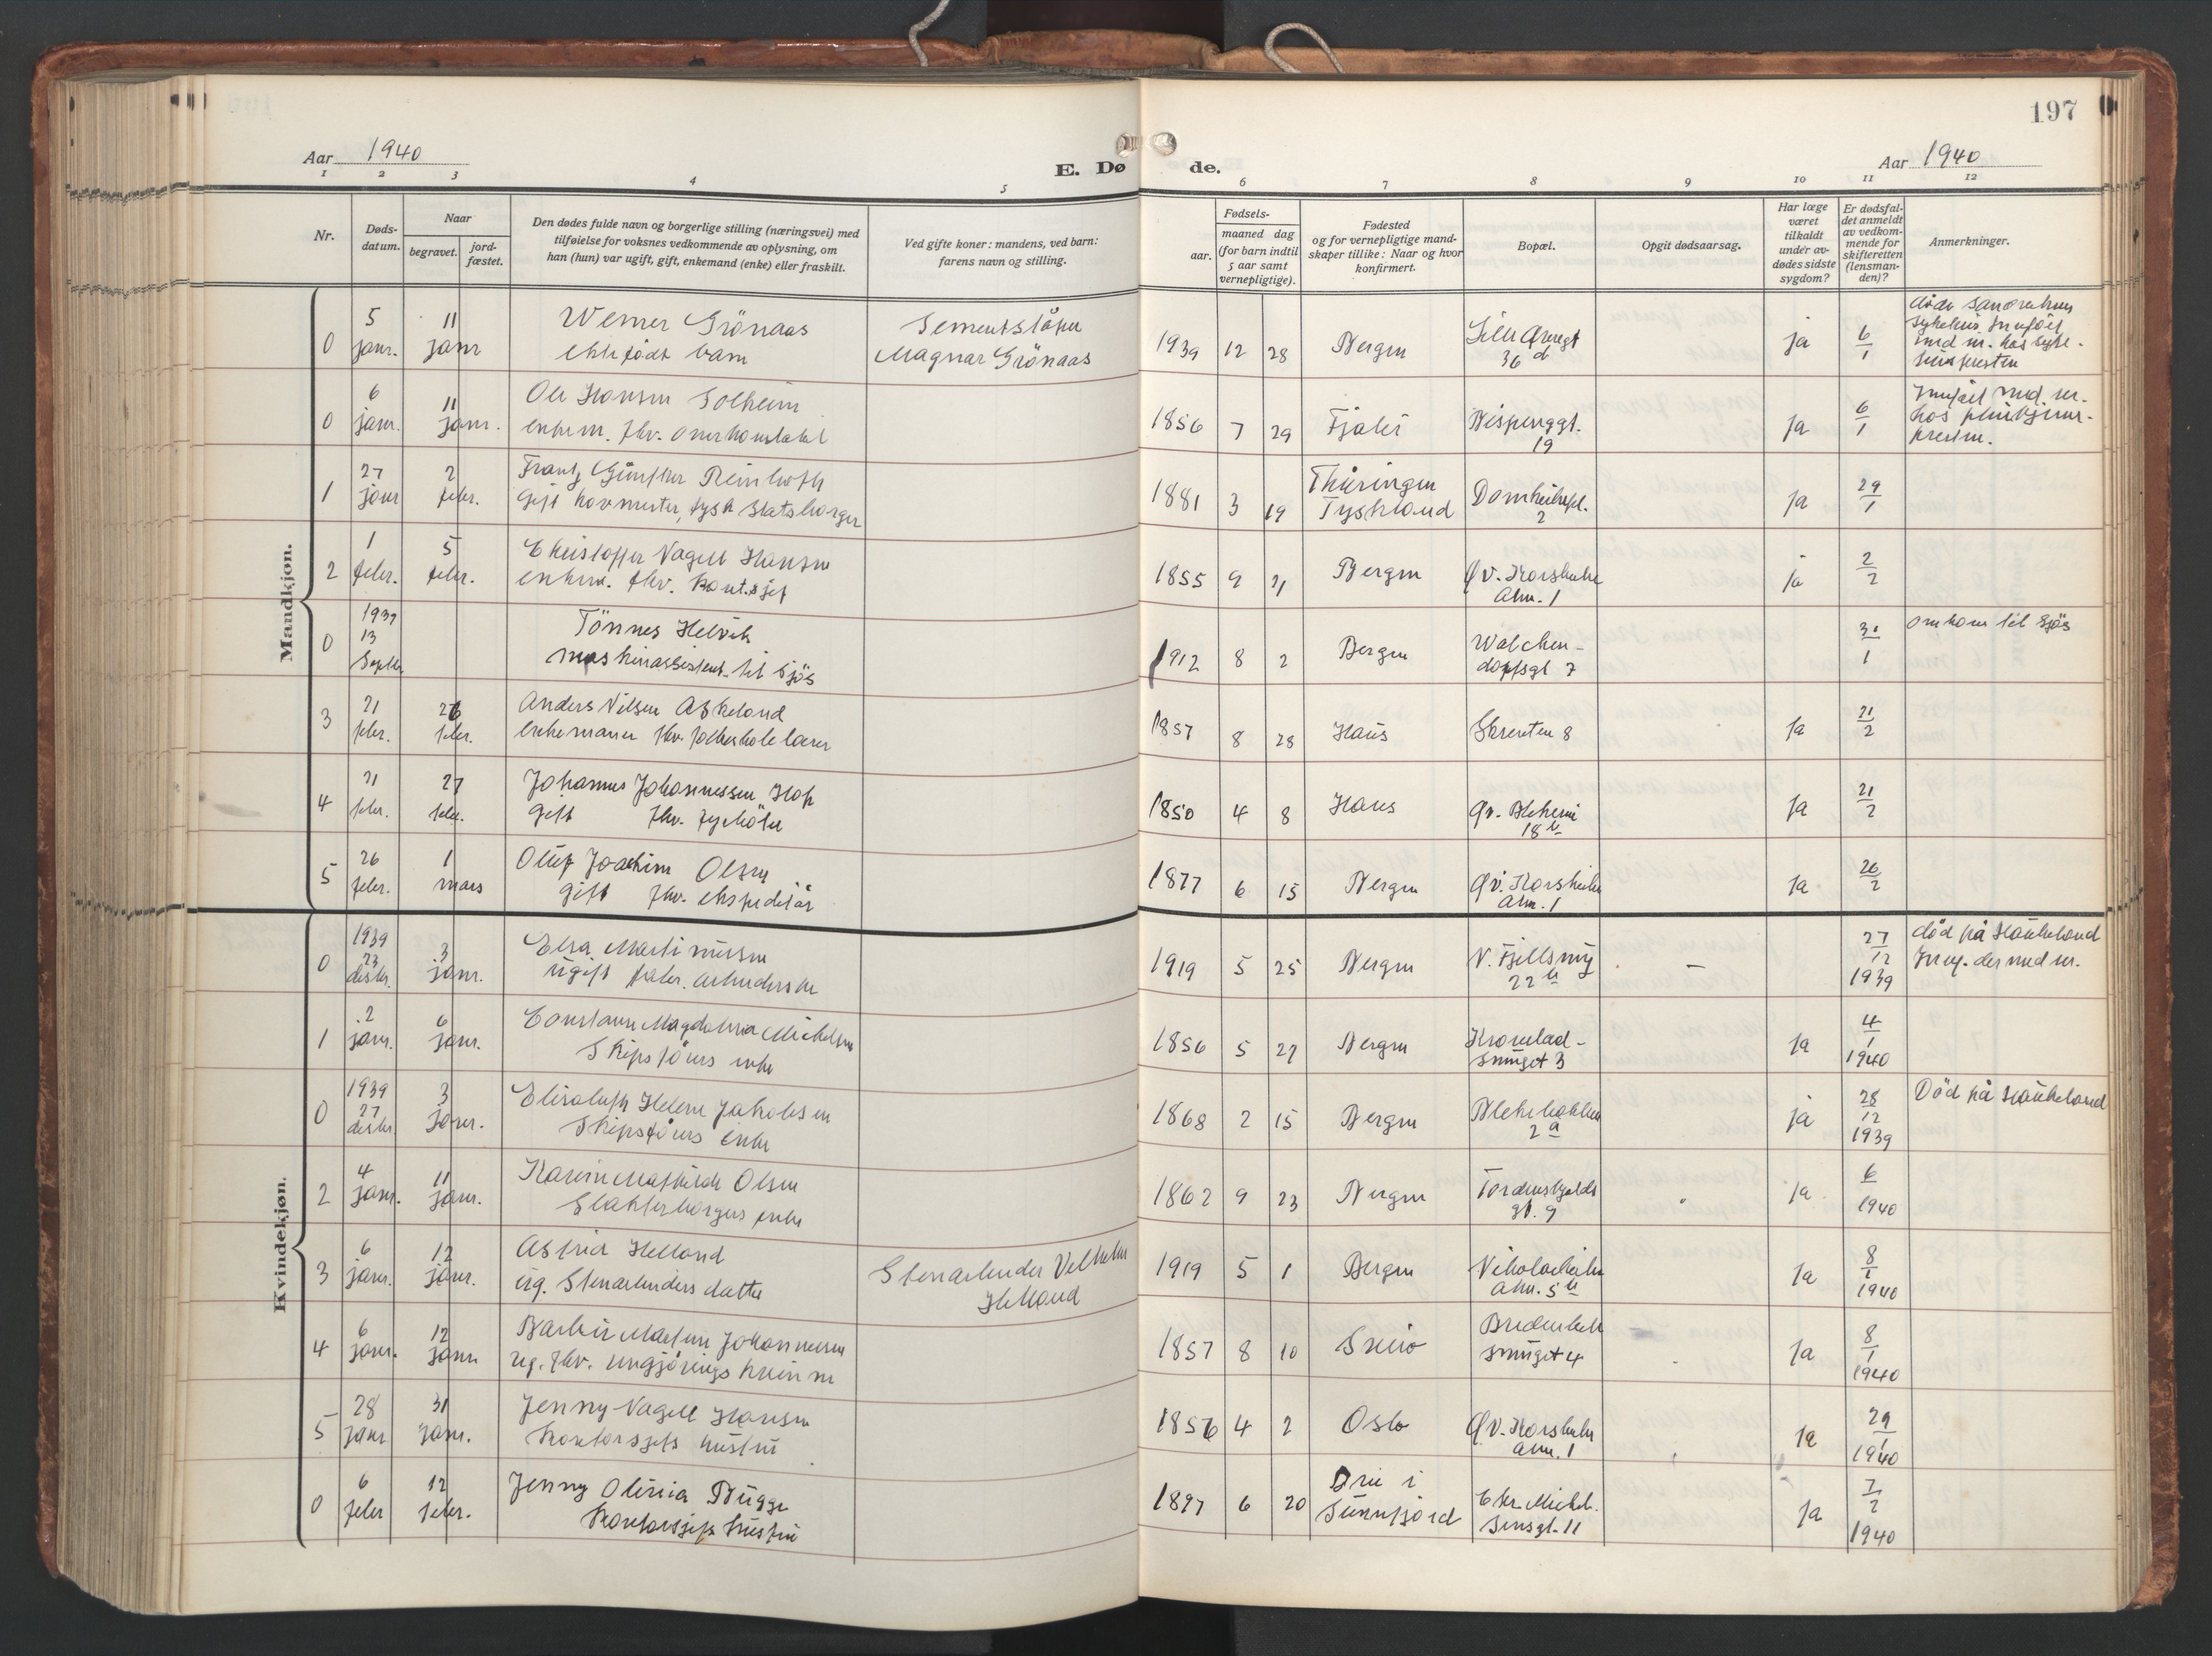 197
Aar 1940
E. Dø de.
Aar 1940
1 2 3 4 5 6 7 8 9 10 11 12
Nr.
Døds-
datum.
Naar
begravet.
jord-
fæstet.
Den dødes fulde navn og borgerlige stilling (næringsvei) med
tilføielse for voksnes vedkommende av oplysning, om
han (hun) var ugift, gift, enkemand (enke) eller fraskilt.
Ved gifte koner: mandens, ved barn:
farens navn og stilling.
Fødsels-
aar.
maaned dag
(for barn indtil
5 aar samt
vernepligtige).
Fødested
og for vernepligtige mand-
skaper tillike: Naar og hvor
konfirmert.
Bopæl.
Opgit dødsaarsag.
Har læge
været
tilkaldt
under av-
dødes sidste
sygdom?
Er dødsfal-
det anmeldt
av vedkom-
mende for
skifteretten
(lensman-
den)?
Anmerkninger.
Mandkjøn.
0 5 janr. 11 janr
Werner Grönaas
ektefödt barn
Sementstöper
Magnar Grönaas
1939 12 28 Bergen
36 d
ja 6/1
0 6 janr. 11 janr.
Ole Hansen Solheim
enkem. fhv.
1856 7 29 Fjaler
19
ja 6/1
1 27 janr 2 febr.
Frantz Günther
Gift hovmester, tysk statsborger
1881 3 19
Thüringen
Tyskland
Domkirkepl.
2
ja 29/1
2 1 febr. 5 febr.
Christoffer Nagell Hansen
enkem. fhv. kont.sjef
1855 9 21 Bergen
Øv. Korskirke
alm. 1
ja 2/2
0 1939 13 Septbr
Tönnes Helvik
maskinassistent til sjös
1912 8 2 Bergen
Walcken-
dorffsgt 7
31/1
omkom til sjös
3 21 febr. 26 febr.
Anders Nilsen Askeland
enkemann fhv. folkeskolelærer
1857 8 28 Haus
Skrenten 8
ja 21/2
4 21 febr. 27 febr.
Johannes Johannessen Hop
Gift fhv. fyrböter
1850 4 8 Haus
Øv. Blekevei
18 b
ja 21/2
5 26 febr. 1 mars
Oluf Joachim Olsen
gift fhv. ekspeditör
1877 6 15 Bergen
Øv. Korskirke
alm. 1
ja 26/2
Kvindekjøn.
0 1939 23 desbr 3 janr.
Elsa Martinussen
ugift fabr. arbeiderske
1919 5 25 Bergen
N. Fjellsmug
22 b
27/12 1939
död på Haukeland
1 2 janr. 6 janr.
Constanse Magdalena Michelsen
Skipsförers enke
1856 5 27 Bergen
smuget 3
ja 4/1 1940
0 1939 27 desbr 3 janr.
Elisabeth Helene Jakobsen
Skipsförers enke
1868 2 15 Bergen
Blekebakken
2 a
ja 28/12 1939
Död på Haukeland
2 4 janr. 11 janr.
Karen Mathilde Olsen
Slakterborgers enke
1862 9 23 Bergen
Tordenskjolds
gt. 9
ja 6 1940
3 6 janr. 12 janr.
Astrid Helland
ug. Stenarbeiders datter
Stenarbeider Vilhelm
Helland
1919 5 1 Bergen
Nikolaikirke
alm. 5 b
ja 8/1 1940
4 6 janr. 12 janr
Johannessen
ug. fhv. rengjörings kvinne
1857 8 10 Sveio
smuget 4
ja 8/1 1940
5 28 janr 31 janr.
Jenny Nagell Hansen
Kontorsjefs hustru
1856 4 2 Oslo
Øv. Korskirke
alm. 1
ja 29/1 1940
0 6 febr 12 febr.
Jenny Olivia Bugge
Kontorsjefs hustru
1897 6 20
i
Sunnfjord
Chr. Michel-
sensgt. 11
ja 7/2 1940